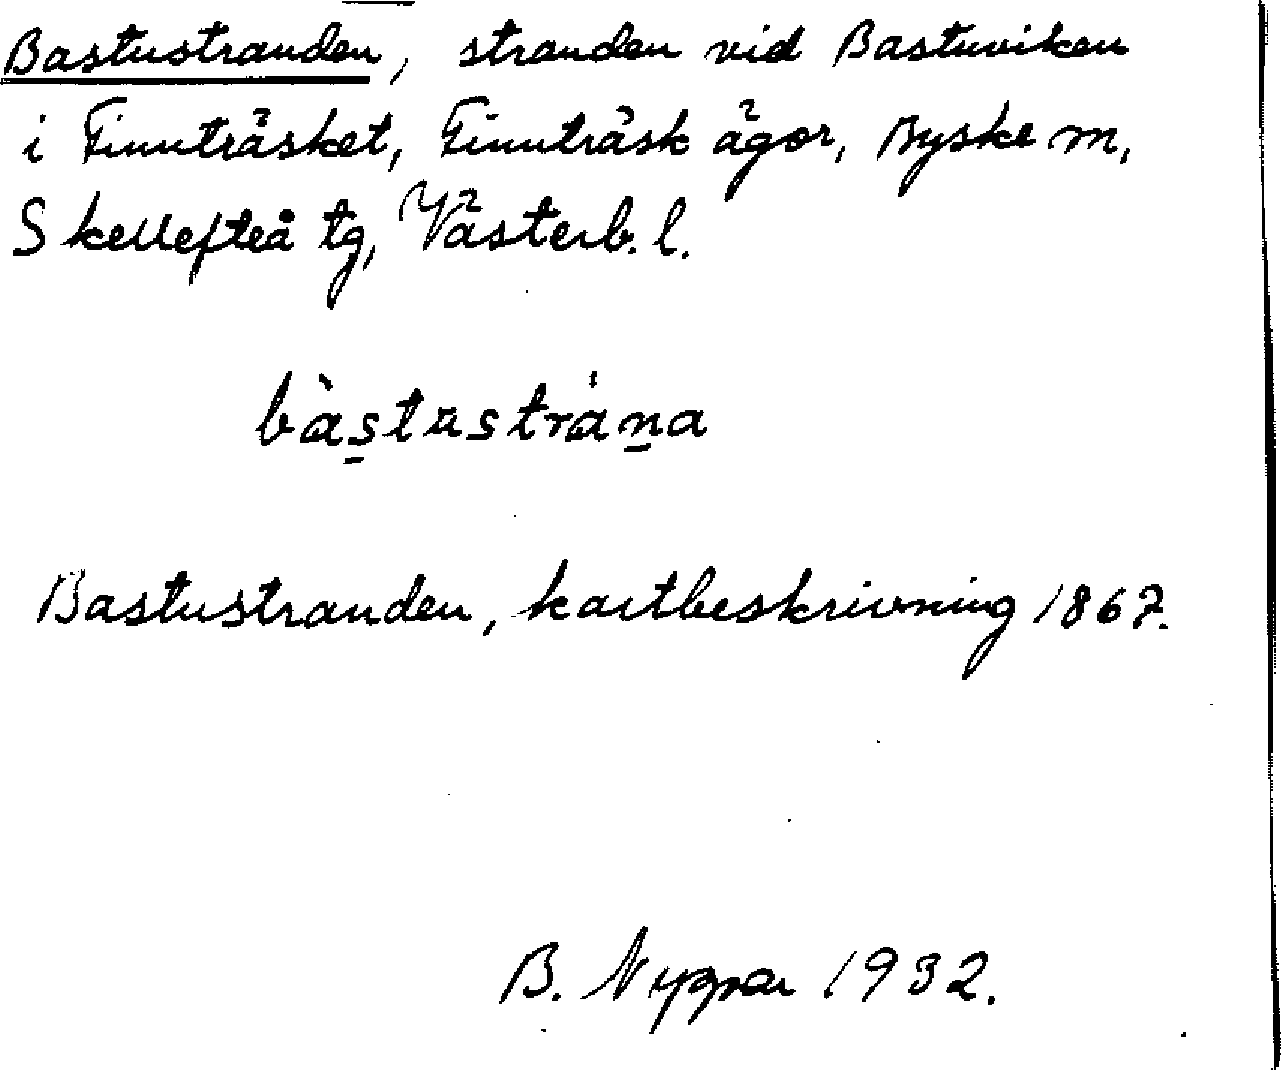 Bastustranden, stranden vid Bastuviken
i Finnträsket, Finnträsk ägor, Byske m,
Skellefteå tg, Västerb. l.
bàs̱tustráṉa
Bastustranden, kartbeskrivning 1867.
B. 1932.